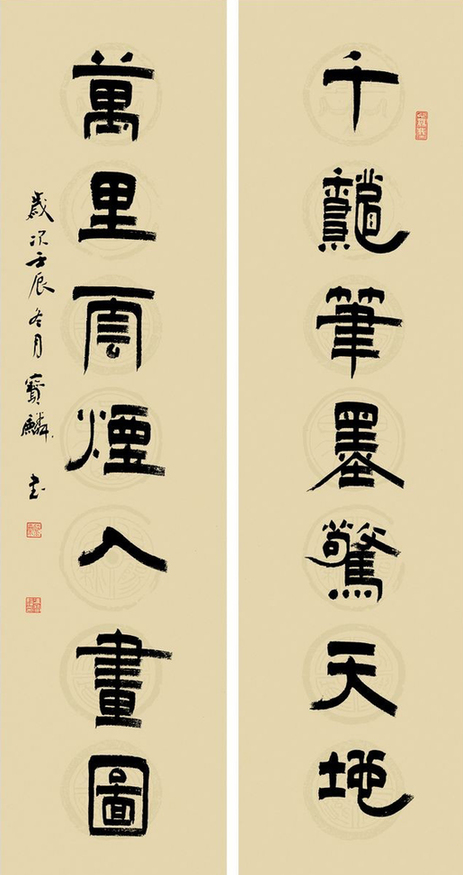 千龝筆墨驚天地
萬里雲煙入畫圖
歲次壬辰冬月寶麟書